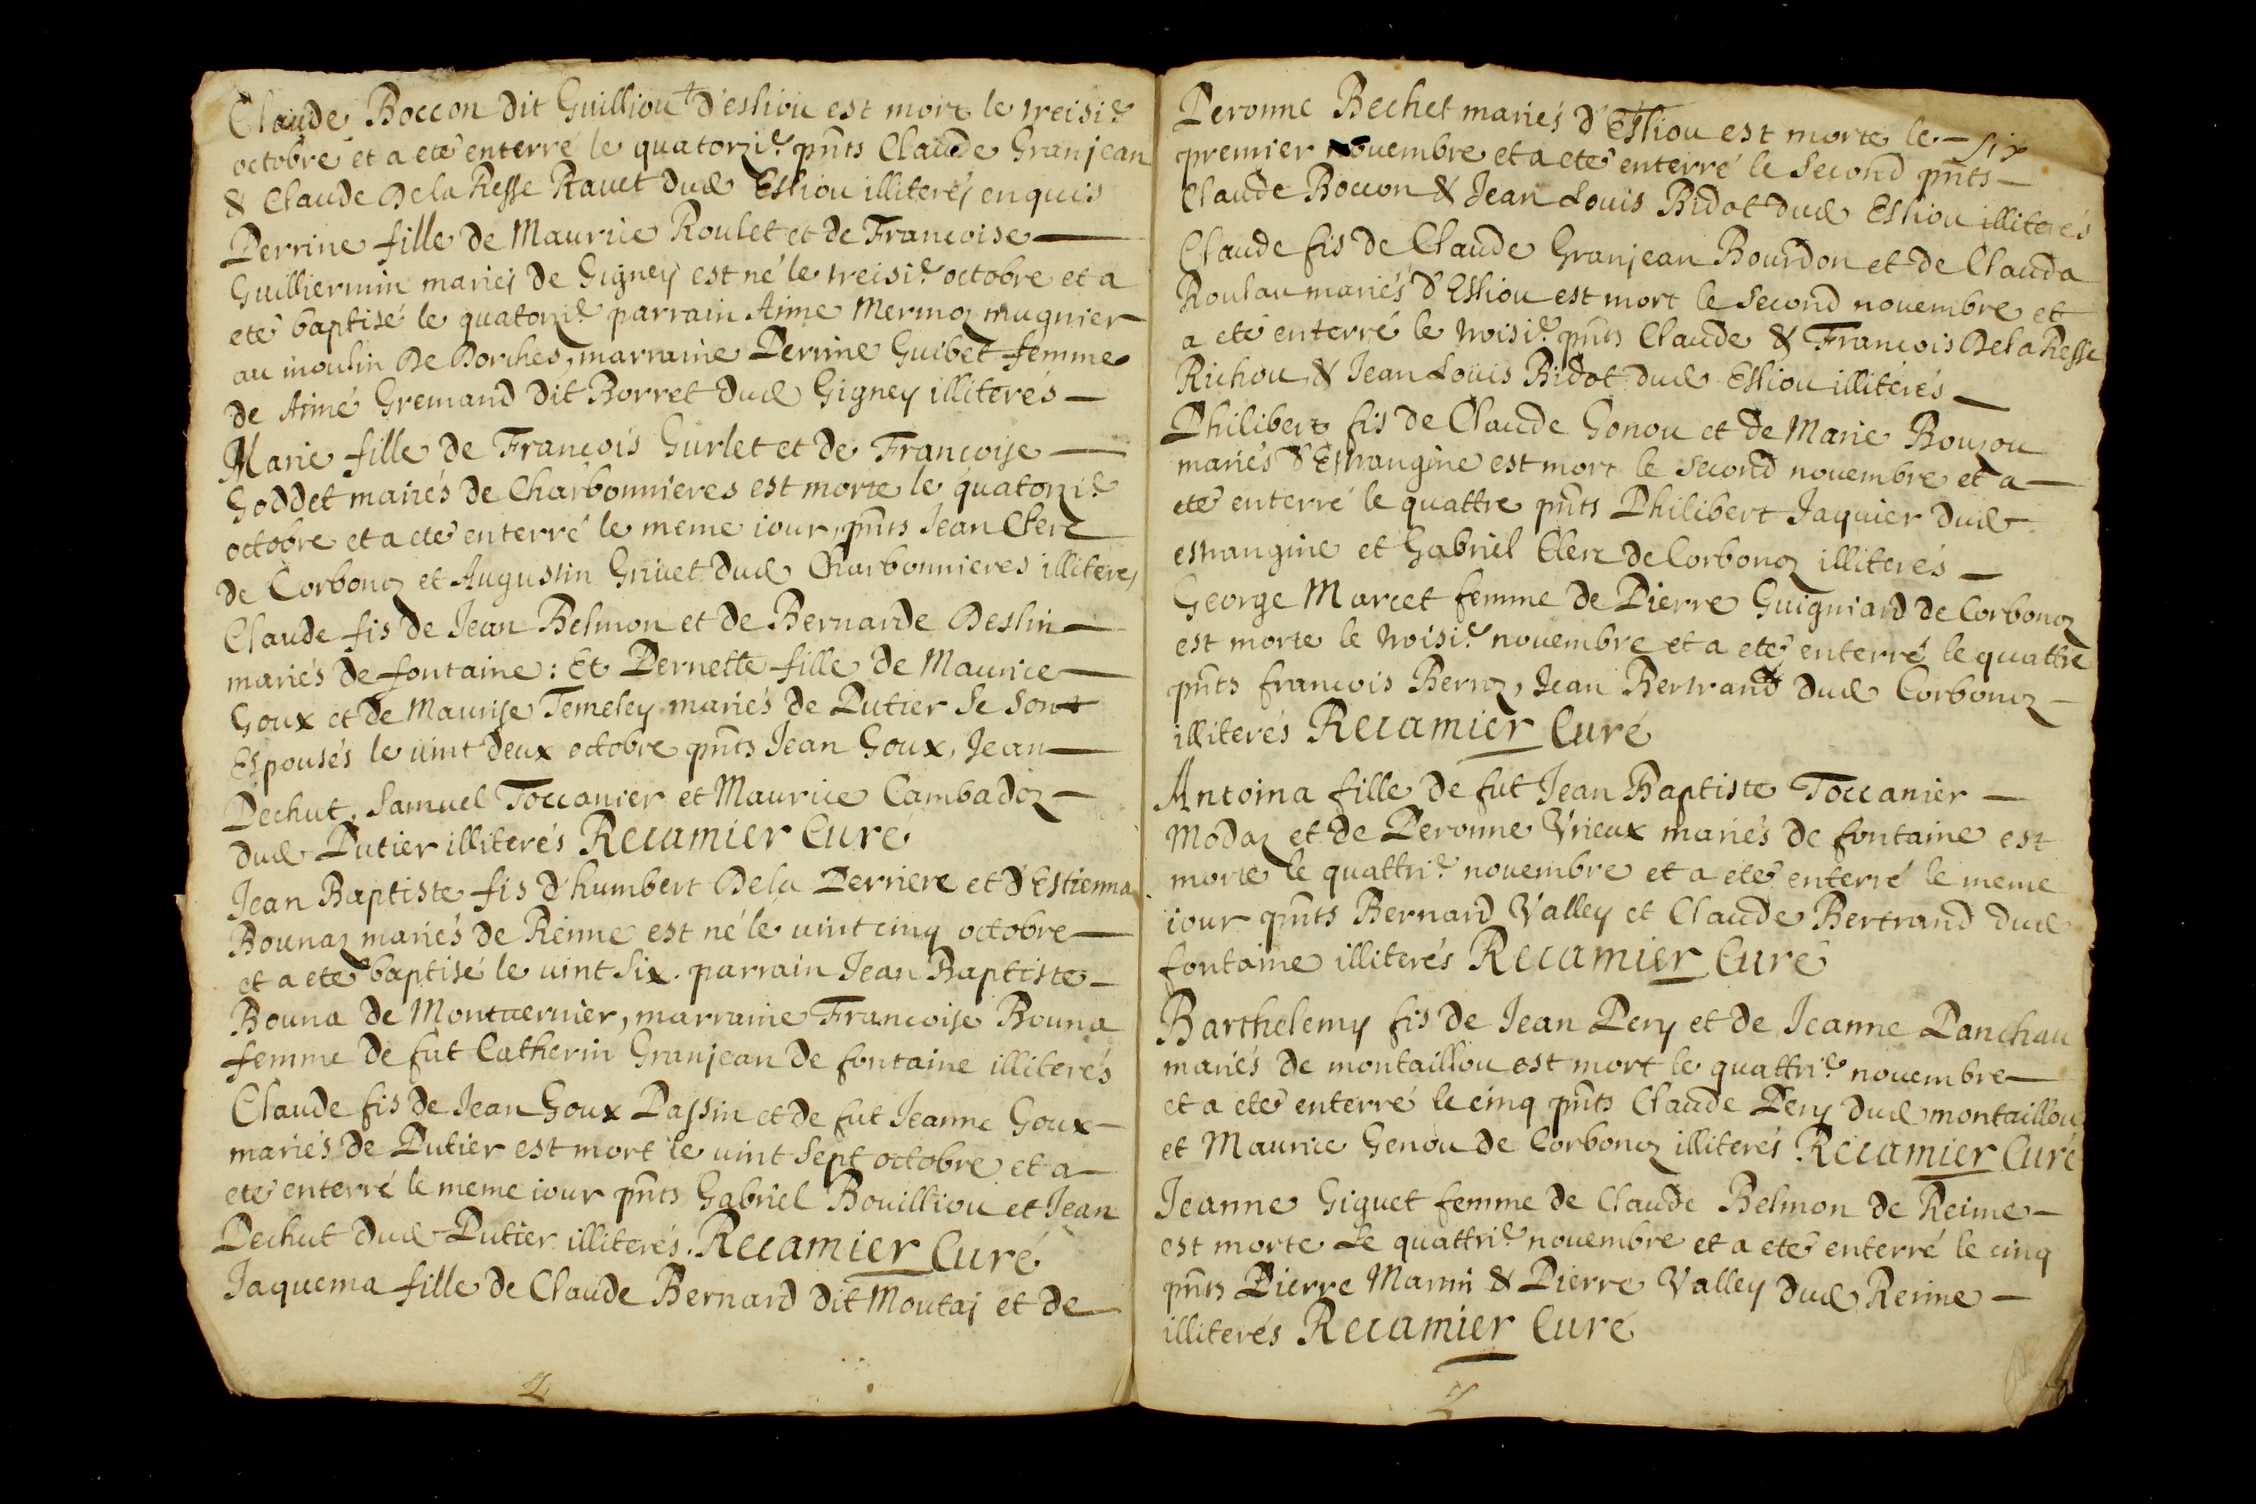 Claude Boccon dit Guilliou d'estiou est mort le treisi.e
octobre et a eté enterré le quatorzi.e pnts Claude Granjean
& Claude Dela Resse Ravet dud Estiou illiterés enquis
Perrine fille de Maurice Roulet et de Francoise
Guilliermin mariés de Gigney est né le treisi.e octobre et a
eté baptisé le quatorzi.e parrain Aime Mermoz mugnier
au moulin De Dorches, marraine Perrine Guibet femme
de Aimé Gremand dit Borret dud Gigney illiterés
Marie fille de Francois Gurlet et de Francoise
Goddet mariés de Charbonnieres est morte le quatorzi.e
octobre et a eté enterré le meme iour, pnts Jean Clerc
de Corbonoz et Augustin Grivet dud Charbonnieres illiterés
Claude fis de Jean Belmon et de Bernarde Deslin
mariés de fontaine : Et Pernette fille de Maurice
Goux et de Maurise Temeley mariés de Putier se sont
Espousés le vint deux octobre pnts Jean Goux, Jean
Pechut, Samuel Toccanier et Maurice Cambadoz
dud Putier illiterés Recamier Curé
Jean Baptiste fis d'humbert Dela Perriere et d'Estienna
Bounaz mariés de Reime est né le vint cinq octobre
et a eté baptisé le vint six. parrain Jean Baptiste
Bouna de Montvernier, marraine Francoise Bouna
femme de fut Catherin Granjean de fontaine illiterés
Claude fis de Jean Goux Passin et de fut Jeanne Goux
mariés de Putier est mort le vint sept octobre et a
eté enterré le meme iour pnts Gabriel Bouilliou et Jean
Pechut dud Putier illiterés. Recamier Curé
Jaquema fille de Claude Bernard dit Moutaj et de
Peronne Bechet mariés d'Estiou est morte le six
premier novembre et a eté enterré le second pnts
Claude Boccon & Jean Louis Bidot dud Estiou illiterés
Claude fis de Claude Granjean Bourdon et de Clauda
Roulau mariés d'Estiou est mort le second novembre et
a eté enterré le troisi.e pnts Claude & Francois Dela Resse
Richou & Jean Louis Bidot dud Estiou illiterés
Philibert fis de Claude Gonou et de Marie Bouzou
mariés d'Estrangine est mort le second novembre et a
eté enterré le quattre pnts Philibert Jaquier dud
estrangine et Gabriel Clerc de Corbonoz illiterés
George Marcet femme de Pierre Guigniard de Corbonoz
est morte le troisi.e novembre et a eté enterré le quattre
pnts francois Berroz, Jean Bertrand dud Corbonoz
illiterés Recamier Curé
Antoina fille de fut Jean Baptiste Toccanier
Modaz et de Peronne Vrieux mariés de fontaine est
morte le quattri.e novembre et a eté enterré le meme
iour pnts Bernard Valley et Claude Bertrand dud
fontaine illiterés Recamier Curé
Barthelemy fis de Jean Pery et de Jeanne Panchau
mariés de montaillou est mort le quattri.e novembre
et a eté enterré le cinq pnts Claude Pery dud montaillou
et Maurice Genou de Corbonoz illiterés Recamier Curé
Jeanne Giguet femme de Claude Belmon de Reime
est morte Le quattri.e novembre et a eté enterré le cinq
pnts Pierre Marin & Pierre Valley dud Reime
illiterés Recamier Curé